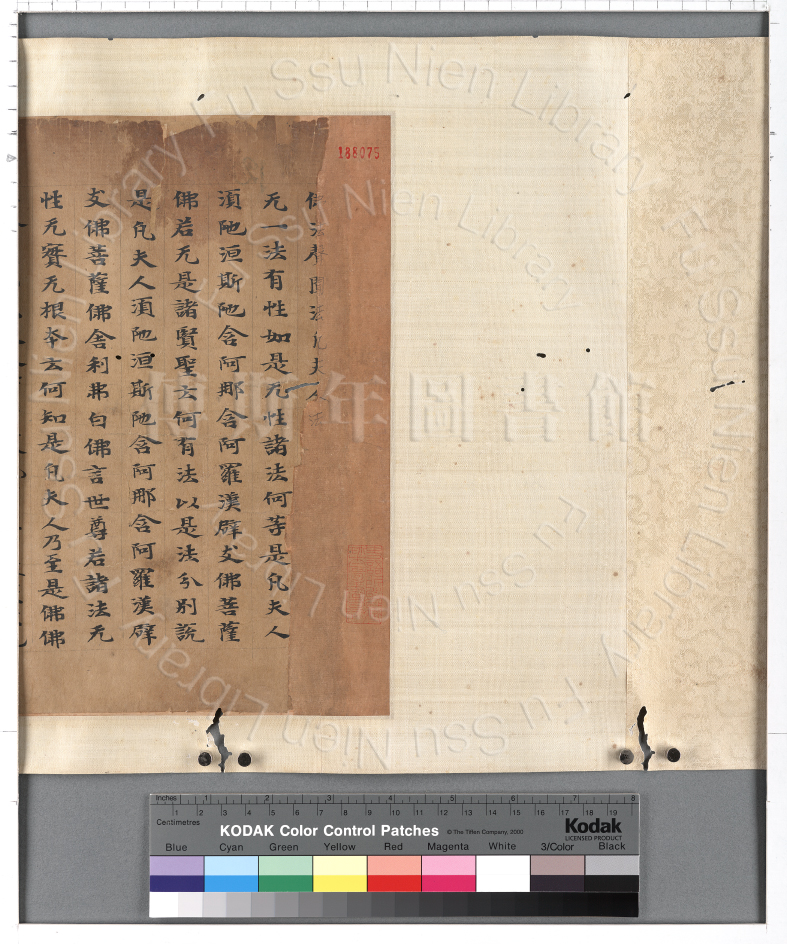 188075
佛法聲聞法凡夫人
无一法有性如是无性諸法何等是凡夫人
湏陁洹斯陁含阿那含阿羅漢辟支佛菩薩
佛若无是諸賢聖云何有法以是法分别說
是凡夫人湏陁洹斯陁含阿那含阿羅漢辟
支佛菩薩佛舍利弗白佛言世尊若諸法无
性无實无根夲云何知是凡夫人乃至是佛佛
傅斯年圖書館
Fu Ssu Nien Library
Fu Ssu Nien Library
Fu Ssu Nien Library
Fu Ssu Nien Library
Inches 1 2 3 4 5 6 7 8
Centimetres 1 2 3 4 5 6 7 8 9 10 11 12 13 14 15 16 17 18 19
KODAK Color Control Patches © The Tiffen Company, 2000 Kodak
LICENSED PRODUCT
Blue Cyan Green Yellow Red Magenta White 3/Color Black